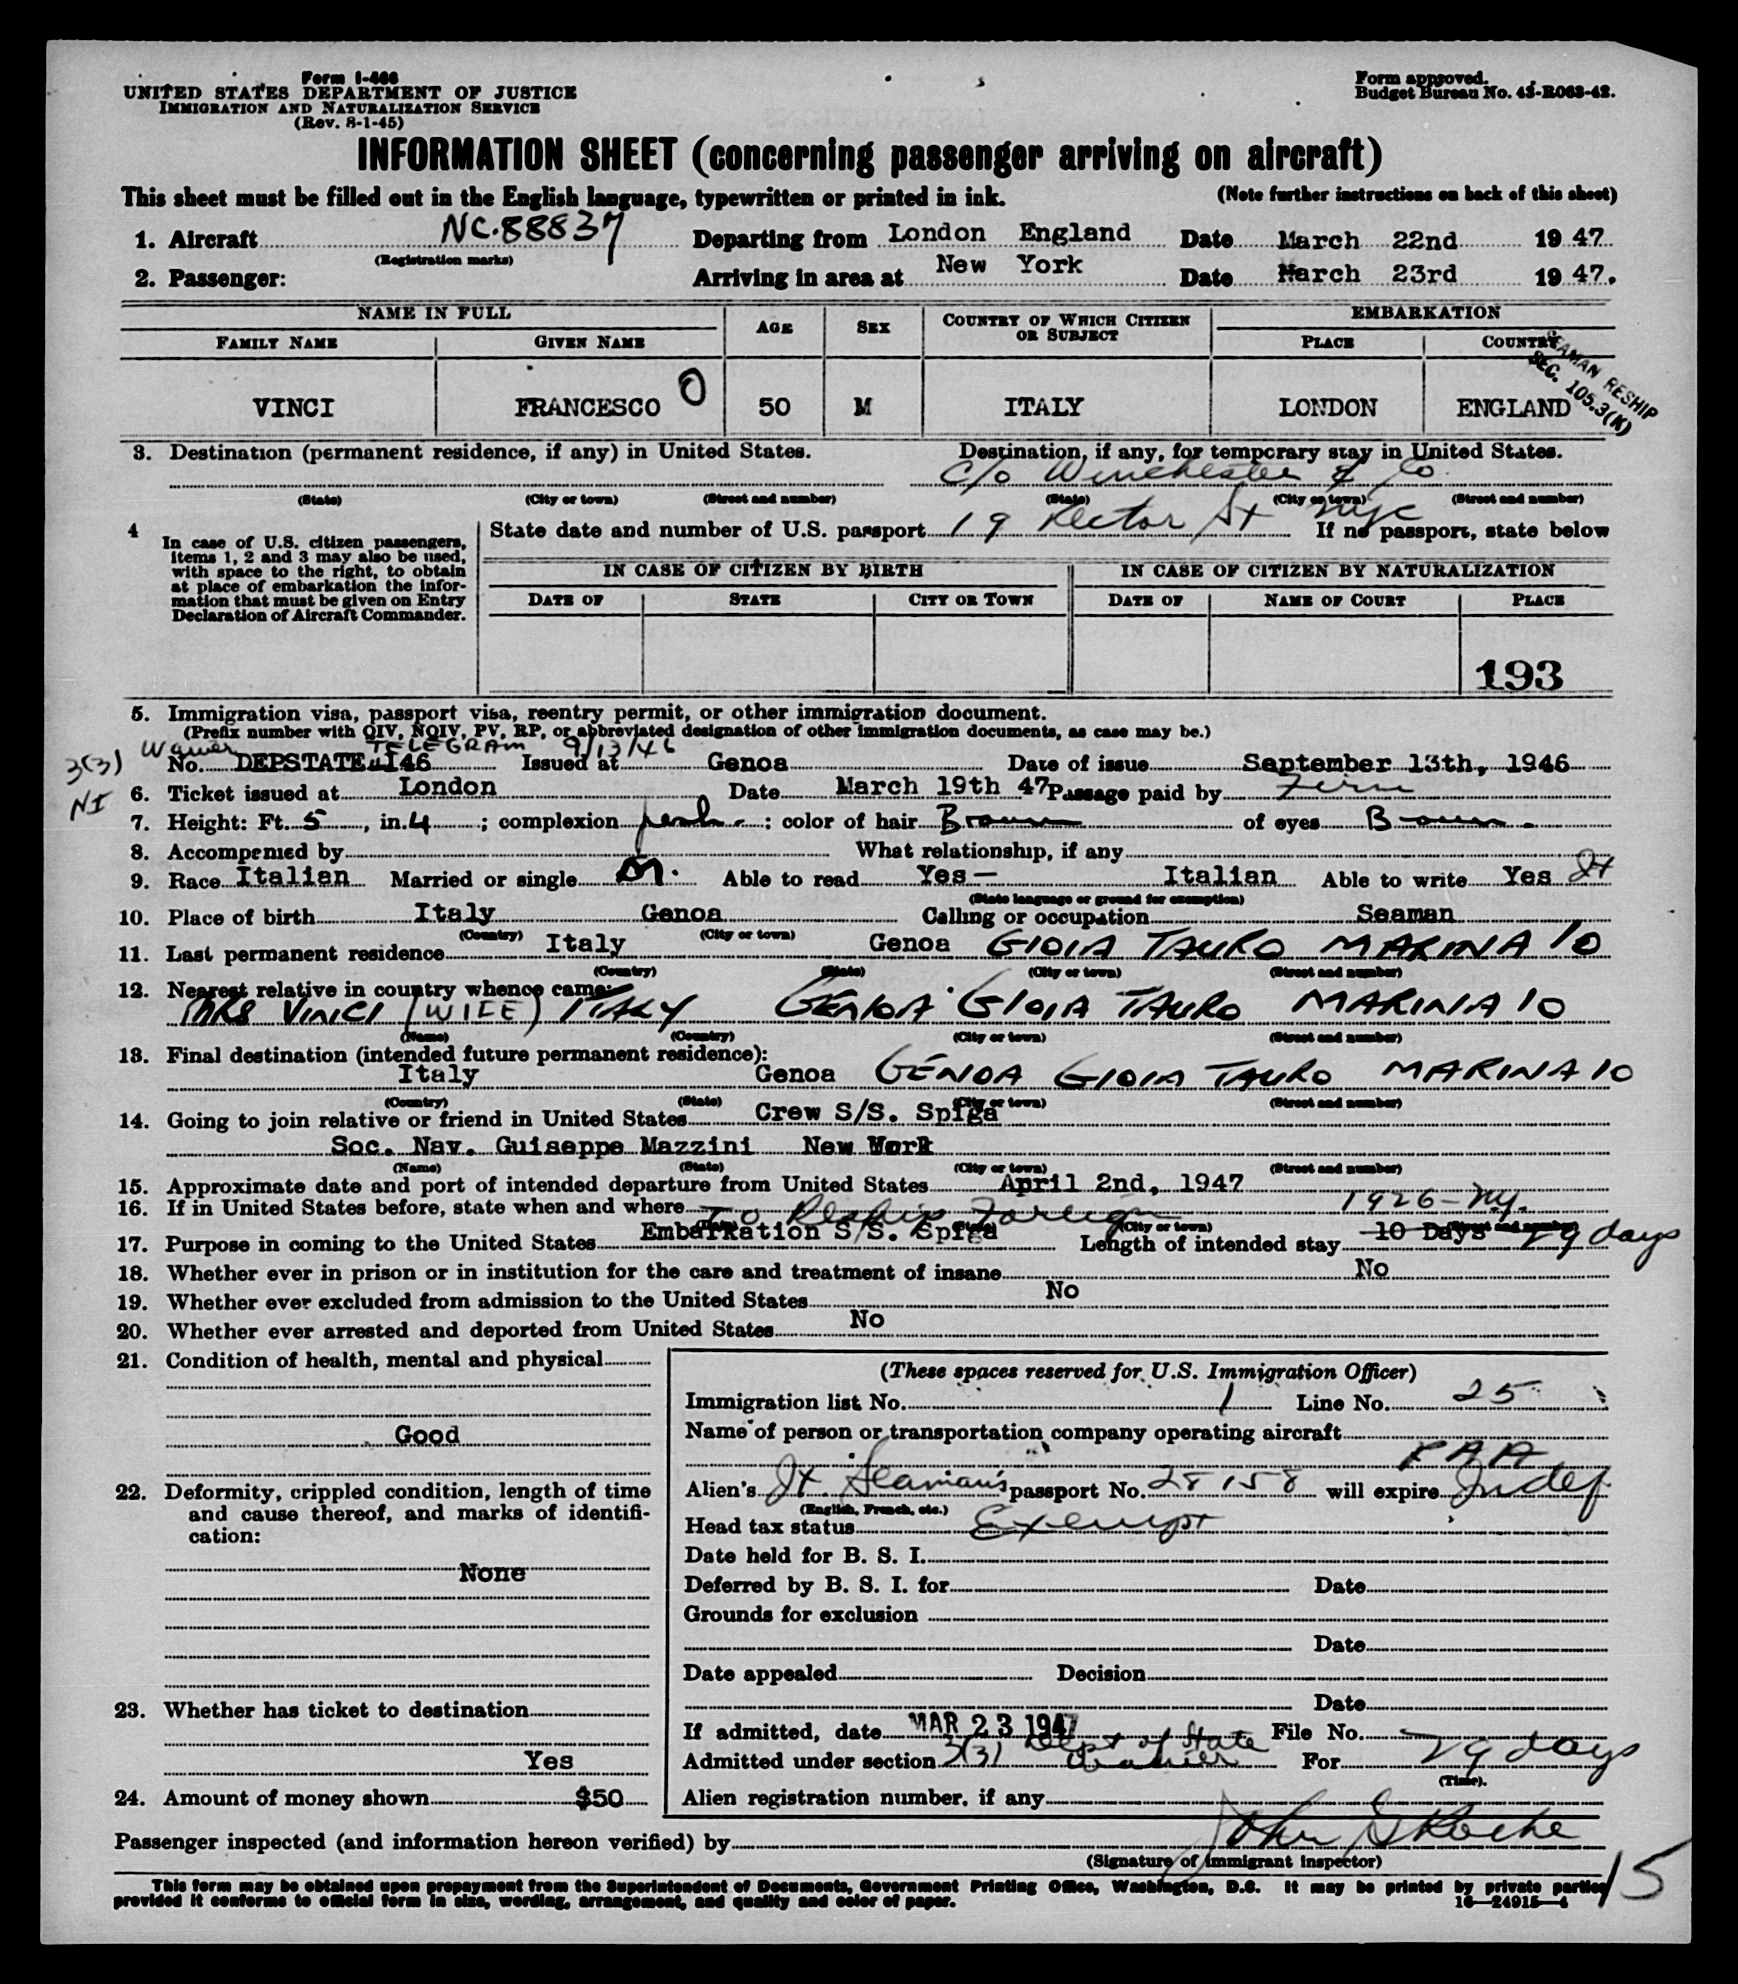 Form I-466
UNITED STATES DEPARTMENT OF JUSTICE
IMMIGRATION AND NATURALIZATION SERVICE
(Rev. 8-1-45)
Form approved.
Budget Bureau No. 43-R063-42.
INFORMATION SHEET (concerning passenger arriving on aircraft)
This sheet must be filled out in the English language, typewritten or printed in ink. (Note further instructions on back of this sheet)
1. Aircraft NC.88837 Departing from London England Date March 22nd 19 47
(Registration marks)
2. Passenger: Arriving in area at New York Date March 23rd 19 47.
NAME IN FULL AGE SEX COUNTRY OF WHICH CITIZEN OR SUBJECT EMBARKATION
FAMILY NAME GIVEN NAME PLACE COUNTRY
SEAMAN RESHIP
SEC. 105.3(K)
VINCI FRANCESCO O 50 M ITALY LONDON ENGLAND
3. Destination (permanent residence, if any) in United States. Destination, if any, for temporary stay in United States.
C/o Winchester & Co
(State) (City or town) (Street and number) (State) (City or town) (Street and number)
4 In case of U.S. citizen passengers, items 1, 2 and 3 may also be used, with space to the right, to obtain at place of embarkation the information that must be given on Entry Declaration of Aircraft Commander.
State date and number of U.S. passport 19 Rector St NYC If no passport, state below
IN CASE OF CITIZEN BY BIRTH IN CASE OF CITIZEN BY NATURALIZATION
DATE OF STATE CITY OR TOWN DATE OF NAME OF COURT PLACE
193
5. Immigration visa, passport visa, reentry permit, or other immigration document.
(Prefix number with QIV, NQIV, PV, RP, or abbreviated designation of other immigration documents, as case may be.)
Waiver TELEGRAM 9/13/46
3(3) No. DEPSTATE I46 Issued at Genoa Date of issue September 13th, 1946
NI 6. Ticket issued at London Date March 19th 47 Passage paid by Firm
7. Height: Ft. 5, in. 4; complexion fresh; color of hair Brown of eyes Brown
8. Accompanied by What relationship, if any
9. Race Italian Married or single M. Able to read Yes — Italian Able to write Yes It
(State language or ground for exemption)
10. Place of birth Italy Genoa Calling or occupation Seaman
(Country) (City or town)
11. Last permanent residence Italy Genoa GIOIA TAURO MARINA 10
(Country) (State) (City or town) (Street and number)
12. Nearest relative in country whence came:
MRS VINCI (WIFE) ITALY GENOA GIOIA TAURO MARINA 10
(Name) (Country) (City or town) (Street and number)
13. Final destination (intended future permanent residence):
Italy Genoa GENOA GIOIA TAURO MARINA 10
(Country) (State) (City or town) (Street and number)
14. Going to join relative or friend in United States Crew S/S. Spiga
Soc. Nav. Guiseppe Mazzini New York
(Name) (State) (City or town) (Street and number)
15. Approximate date and port of intended departure from United States April 2nd, 1947
16. If in United States before, state when and where 1926 - NY.
To Reship Foreign
(State) (City or town) (Street and number)
17. Purpose in coming to the United States Embarkation S/S. Spiga Length of intended stay 10 Days 29 days
18. Whether ever in prison or in institution for the care and treatment of insane No
19. Whether ever excluded from admission to the United States No
20. Whether ever arrested and deported from United States No
21. Condition of health, mental and physical
Good
22. Deformity, crippled condition, length of time and cause thereof, and marks of identification:
None
23. Whether has ticket to destination
Yes
24. Amount of money shown $50
(These spaces reserved for U.S. Immigration Officer)
Immigration list No. 1 Line No. 25
Name of person or transportation company operating aircraft
PAA
Alien's It. Seaman's passport No. 28158 will expire Indef.
(English, French, etc.)
Head tax status Exempt
Date held for B. S. I.
Deferred by B. S. I. for Date
Grounds for exclusion
Date
Date appealed Decision
Date
If admitted, date MAR 23 1947 File No.
Admitted under section 3(3) Dept of State Waiver For 29 days
(Time).
Alien registration number, if any
Passenger inspected (and information hereon verified) by John G Roche
(Signature of immigrant inspector)
15
This form may be obtained upon prepayment from the Superintendent of Documents, Government Printing Office, Washington, D.C. It may be printed by private parties
provided it conforms to official form in size, wording, arrangement, and quality and color of paper. 16—24915-4